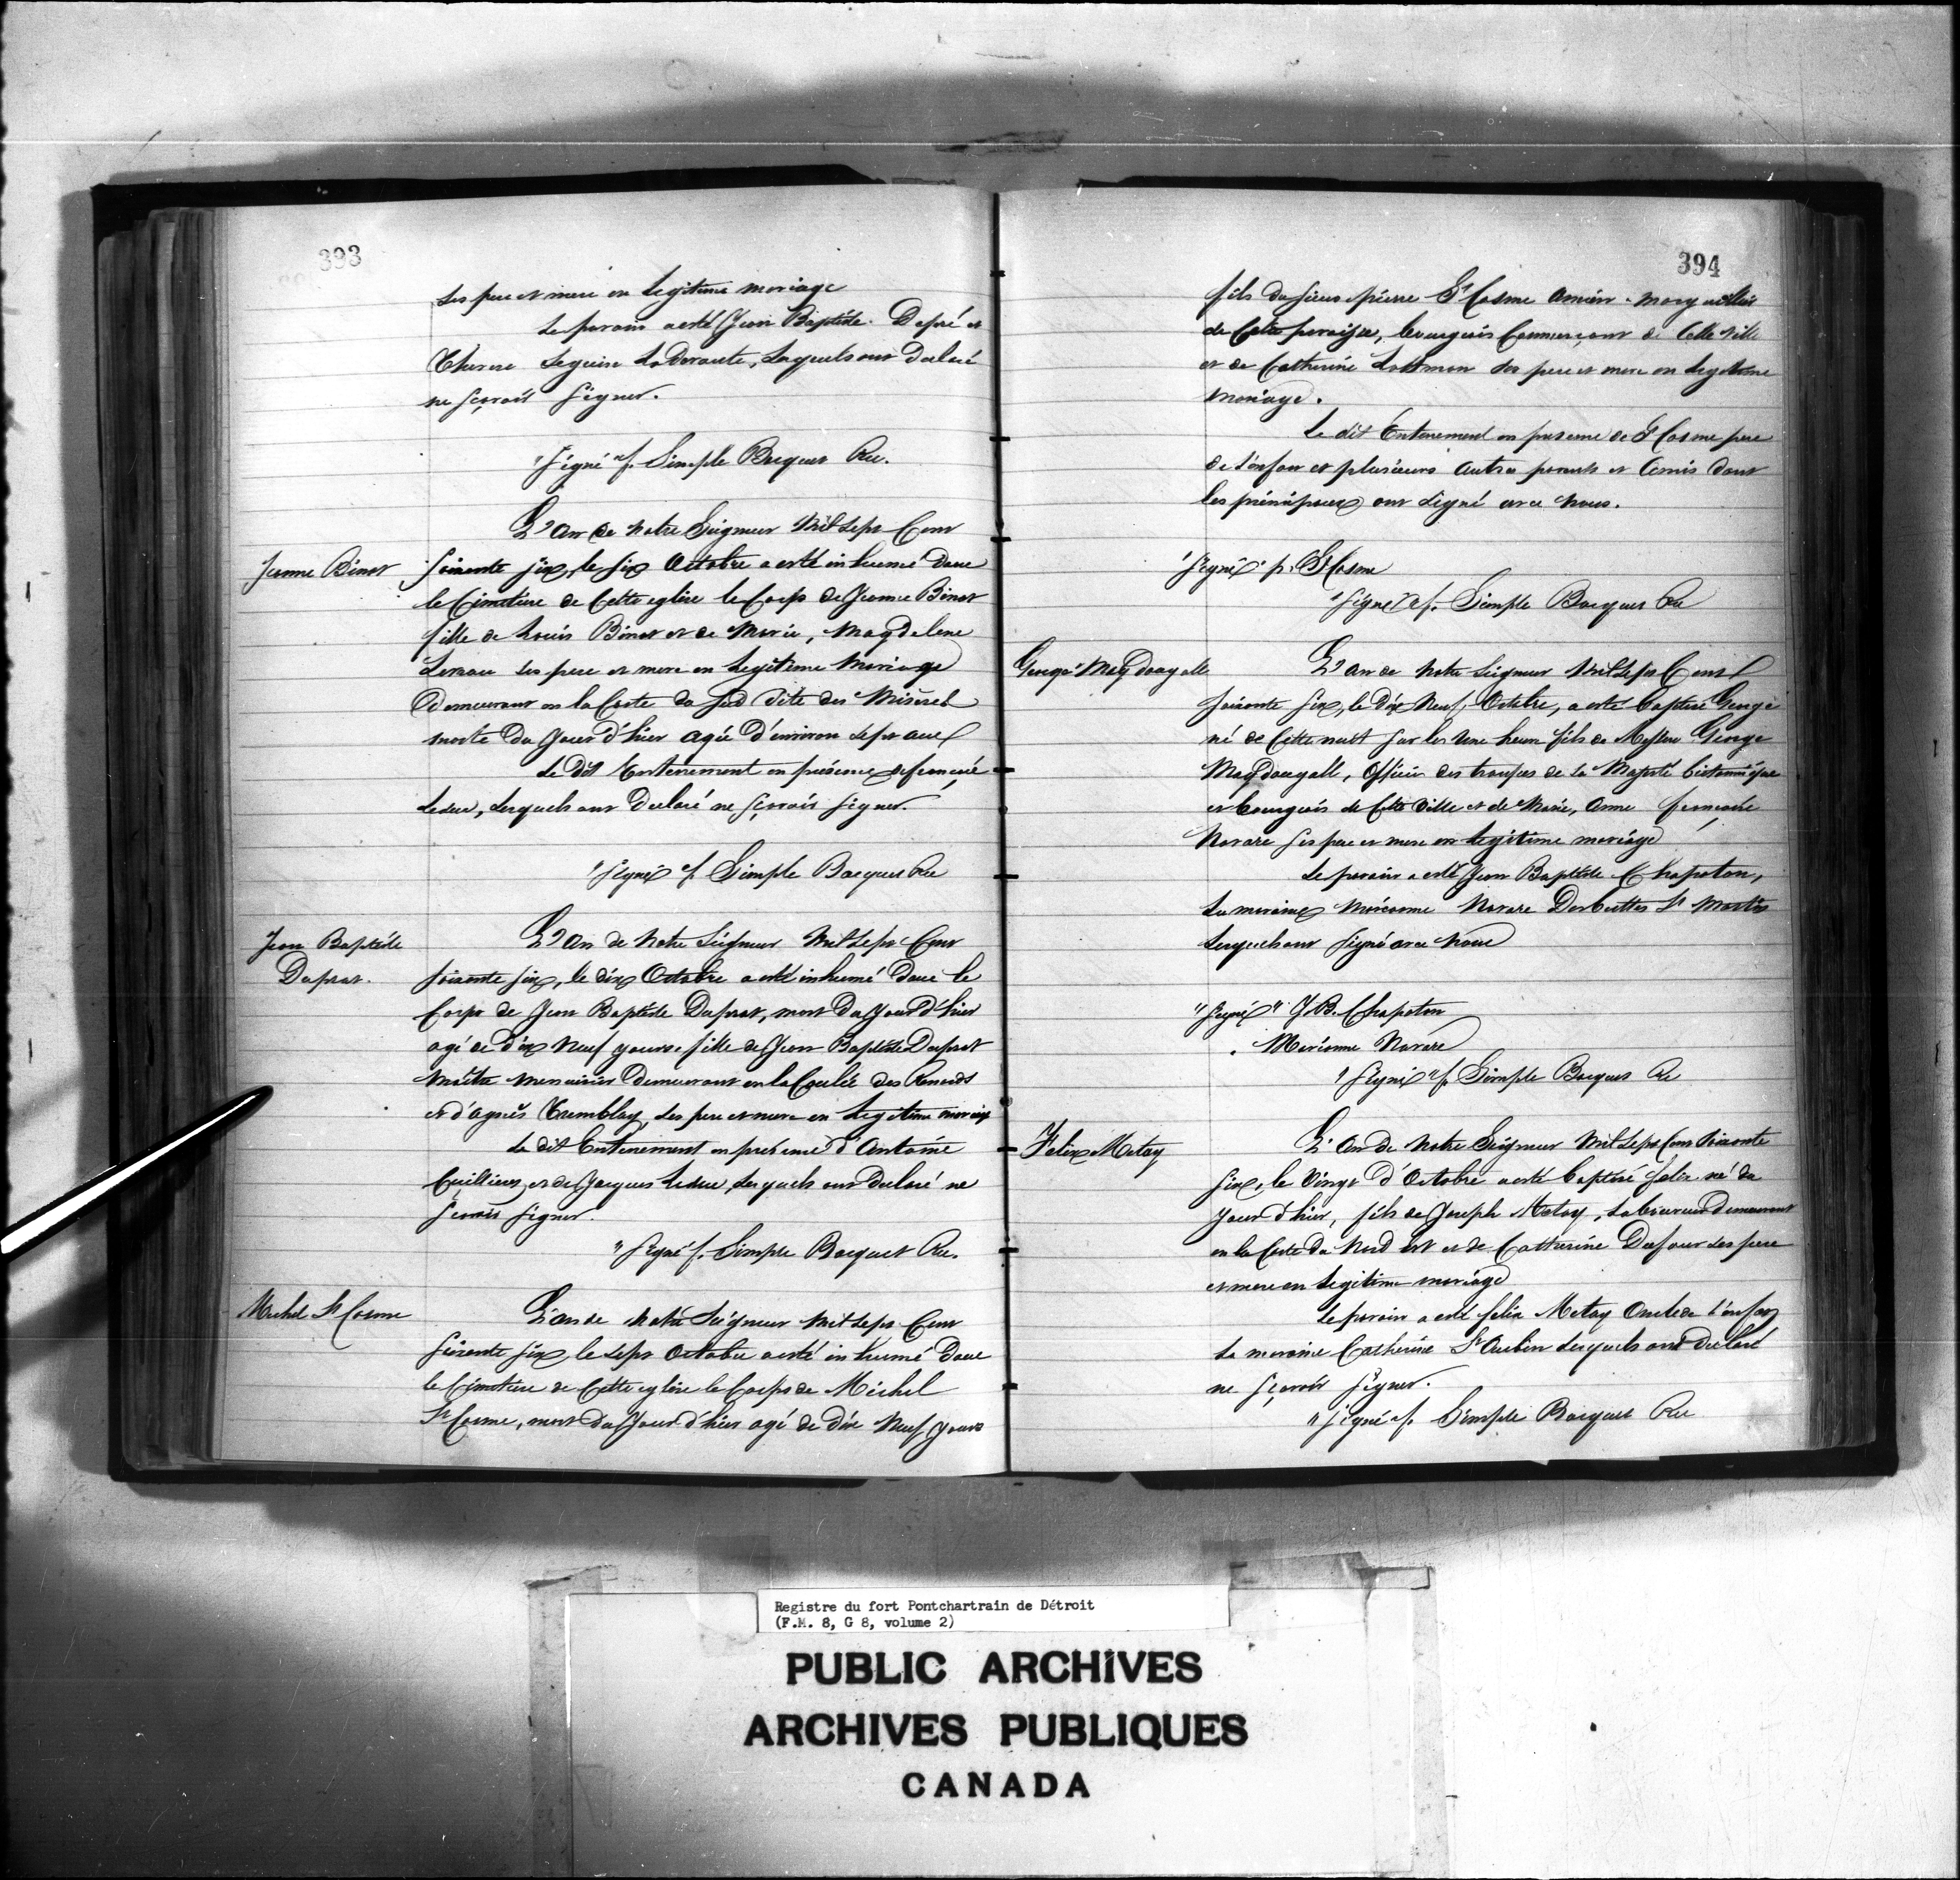 393
ses pere et mere en legitime mariage
Le parain a esté Jean Baptiste Dupré et
Therese Seguin Laderoute, Lesquels ont Declaré
ne sçavoir signer.
"Signé" f. Simple Bocquet Rec.
L'an de notre Seigneur Mil sept Cent
Jeanne Binet
soixante six, le six Octobre a esté inhumé dans
le Cimetiere de Cette eglise le Corps de Jeanne Binet
fille de Louis Binet et de Marie, Magdelene
ses pere et mere en legitime Mariage
Demeurant en la Coste du Sud dite des Miseres
morte du Jour d'hier agée d'environ sept ans
Le dit Enterrement en présence de françois
Leduc, Lesquels ont Declaré ne sçavoir signer.
"Signé" f. Simple Bocquet Rec
Jean Baptiste
Duprat.
L'an de Notre Seigneur Mil sept Cent
soixante six, le dix Octobre a esté inhumé dans le
Corps de Jean Baptiste Duprat, mort du Jour d'hier
agé de dix Neuf jours fille de Jean Baptiste Duprat
Maître Menuisier Demeurant en la Coulée des Renards
et d'agnès Tremblay, ses pere et mere en Legitime mariage
Le dit Enterrement en présence d'Antoine
Cuillierier et de Jacques Leduc, Lesquels ont Declaré ne
sçavoir signer.
"Signé" f. Simple Bocquet Rec.
Michel St Cosme
L'an de Notre Seigneur Mil sept Cent
soixante six, le sept Octobre a esté inhumé dans
le Cimetiere de Cette eglise le Corps de Michel
St Cosme, mort du Jour d'hier agé de dix Neuf jours
394
fils du sieur pierre St Cosme Ancien Marguillier
de Cette paroisse, bourgeois Commerçant de Cette Ville
et de Catherine ses pere et mere en legitime
Mariage.
Le dit Enterrement en presence de St Cosme pere
de l'enfant et plusieurs Autres parents et Amis dont
les principaux ont signé avec Nous.
"Signé" p. St Cosme
"Signé" f. Simple Bocquet Rec
George MagDougall
L'an de Notre Seigneur Mil sept Cent
soixante six, le dix Neuf Octobre, a esté baptisé George
né de Cette nuit sur les Une heure fils de Messire George
MagDougall, Officier des troupes de Sa Majesté britannique
et bourgeois de Cette Ville et de Marie, Anne françoise
Navare ses pere et mere en legitime mariage
Le parain a esté Jean Baptiste Chapoton,
La maraine Marianne Navare Desbuttes St Martin
Lesquels ont signé avec Nous
"Signé" J B. Chapoton
" Marianne Navare
"Signé" f. Simple Bocquet Rec
Felix Metay
L'an de Notre Seigneur Mil sept Cent soixante
six, le Vingt d'Octobre a esté baptisé felix né du
Jour d'hier, fils de Joseph Metay, Laboureur Demeurant
en la Coste du Nord Est et de Catherine Dufour ses pere
et mere en legitime mariage
Le parain a esté felix Metay Oncle de l'enfant
La maraine Catherine St Aubin Lesquels ont declaré
ne sçavoir signer.
"Signé" f. Simple Bocquet Rec
Registre du fort Pontchartrain de Détroit
(F.M. 8, G 8, volume 2)
PUBLIC ARCHIVES
ARCHIVES PUBLIQUES
CANADA